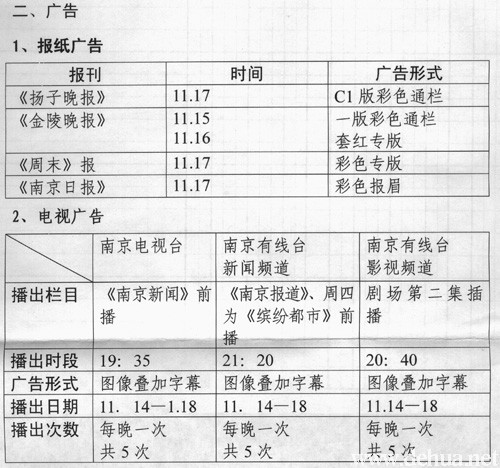 二、广告
1、报纸广告
报刊 时间 广告形式
《扬子晚报》 11.17 C1版彩色通栏
《金陵晚报》 11.15 一版彩色通栏
11.16 套红专版
《周末》报 11.17 彩色专版
《南京日报》 11.17 彩色报眉
2、电视广告
南京电视台 南京有线台 南京有线台
新闻频道 影视频道
播出栏目 《南京新闻》前 《南京报道》、周四 剧场第二集插
播 为《缤纷都市》前 播
播
播出时段 19：35 21：20 20：40
广告形式 图像叠加字幕 图像叠加字幕 图像叠加字幕
播出日期 11. 14—1.18 11. 14—18 11.14—18
播出次数 每晚一次 每晚一次 每晚一次
共5次 共5次 共5次